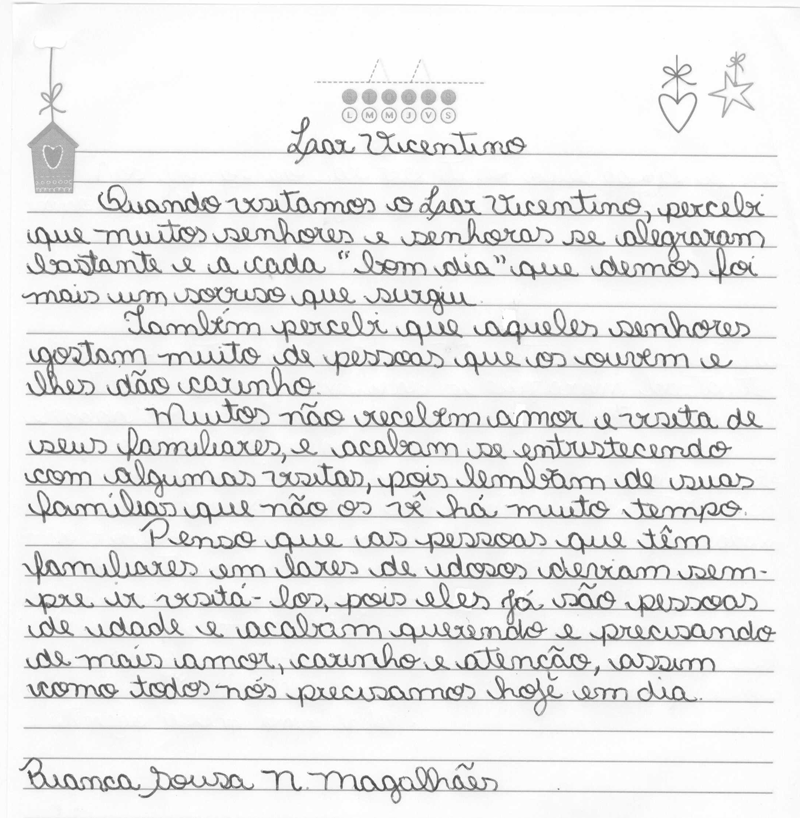 L M M J V S
Lar Vicentino
Quando visitamos o Lar Vicentino, percebi
que muitos senhores e senhoras se alegraram
bastante e a cada "bom dia" que demos foi
mais um sorriso que surgiu.
Também percebi que aqueles senhores
gostam muito de pessoas que os ouvem e
lhes dão carinho.
Muitos não recebem amor e visita de
seus familiares, e acabam se entristecendo
com algumas visitas, pois lembram de suas
famílias que não os vê há muito tempo.
Penso que as pessoas que têm
familiares em lares de idosos deviam sem-
pre ir visitá-los, pois eles já são pessoas
de idade e acabam querendo e precisando
de mais amor, carinho e atenção, assim
como todos nós precisamos hoje em dia.
Bianca Sousa N. Magalhães